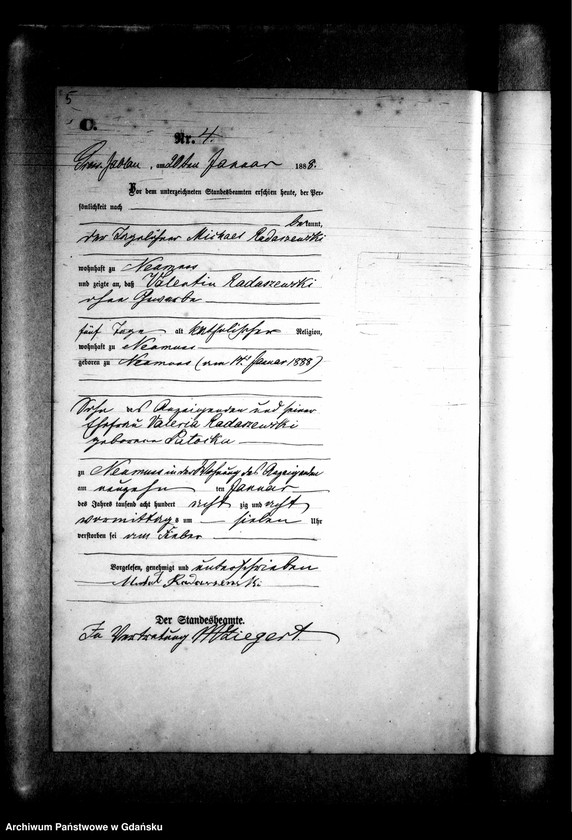 5
C.
Nr. 4.
Gross Jablau, am 20ten Januar 1888.
Vor dem unterzeichneten Standesbeamten erschien heute, der Per-
sönlichkeit nach
bekannt,
der Tagelöhner Michael Radaszewski
wohnhaft zu Neumuss
und zeigte an, daß Valentin Radaszewski
ohne Gewerbe
fünf Tage alt katholischer Religion,
wohnhaft zu Neumuss
geboren zu Neumuss (am 14t Januar 1888)
Sohn des Anzeigenden und seiner
Ehefrau Valeria Radaszewski
geborene
zu Neumuss in der Wohnung des Anzeigenden
am neunzehn ten Januar
des Jahres tausend acht hundert acht zig und acht
vormittags um sieben Uhr
verstorben sei am Fieber
Vorgelesen, genehmigt und unterschrieben
Radaszewski
Der Standesbeamte.
In Vertretung Wiegert
Archiwum Państwowe w Gdańsku